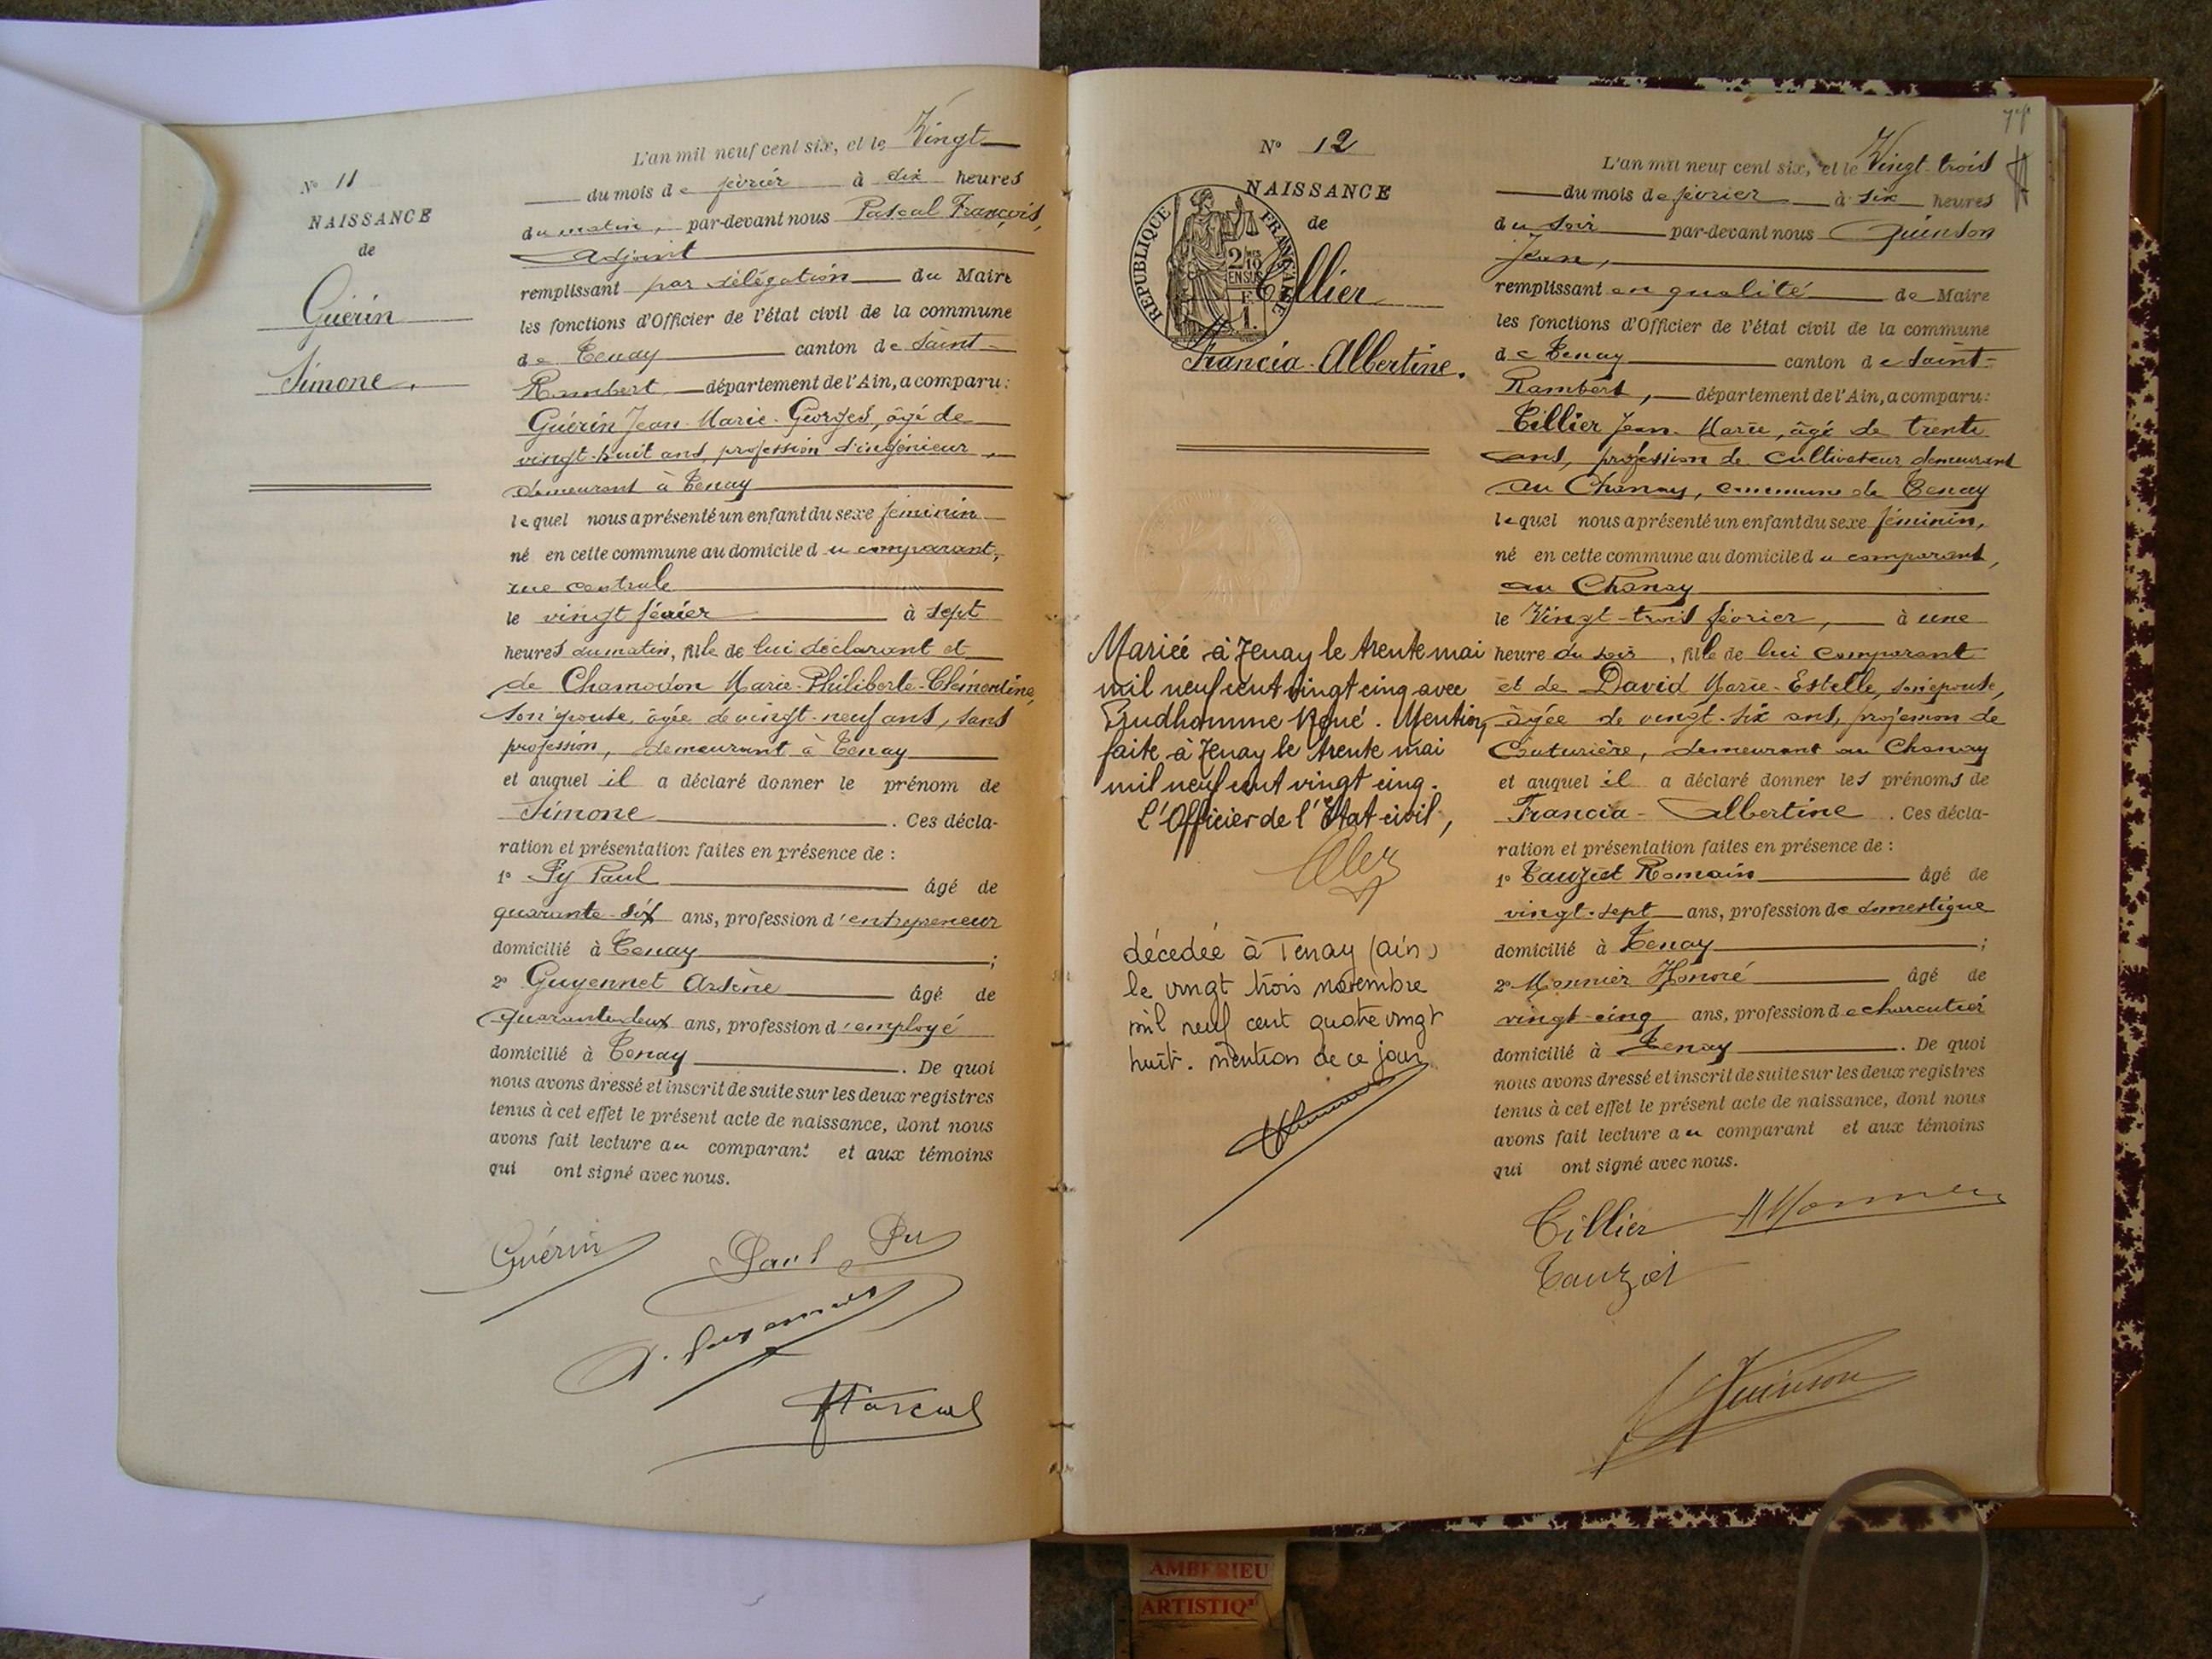 N° 11
NAISSANCE
de
Guérin
Simone.
L'an mil neuf cent six, et le Vingt
du mois de février à dix heures
du matin, par-devant nous Pascal François,
Adjoint
remplissant par délégation du Maire
les fonctions d'Officier de l'état civil de la commune
de Tenay canton de Saint-
Rambert département de l'Ain, a comparu :
Guérin Jean-Marie-Georges, âgé de
vingt-huit ans, profession d'ingénieur
demeurant à Tenay
lequel nous a présenté un enfant du sexe féminin
né en cette commune au domicile du comparant,
rue centrale
le vingt février à sept
heures du matin, fille de lui déclarant et
de Chamodon Marie-Philiberte-Clémentine,
son épouse, âgée de vingt-neuf ans, sans
profession, demeurant à Tenay
et auquel il a déclaré donner le prénom de
Simone . Ces décla-
ration et présentation faites en présence de :
1° Py Paul âgé de
quarante-six ans, profession d'entrepreneur
domicilié à Tenay ;
2° Guyennet Arsène âgé de
quarante-deux ans, profession d'employé
domicilié à Tenay . De quoi
nous avons dressé et inscrit de suite sur les deux registres
tenus à cet effet le présent acte de naissance, dont nous
avons fait lecture au comparant et aux témoins
qui ont signé avec nous.
Guérin Paul Py
A. Guyennet
Pascal
N° 12
NAISSANCE
de
REPUBLIQUE FRANÇAISE
2/10 EN SUS
F.
1.
Tillier
Francia-Albertine.
Mariée à Tenay le trente mai
mil neuf cent vingt cinq avec
Prudhomme René. Mention
faite à Tenay le trente mai
mil neuf cent vingt cinq.
L'Officier de l'Etat civil,
décedée à Tenay (Ain)
le vingt trois novembre
mil neuf cent quatre vingt
huit. mention de ce jour
L'an mil neuf cent six, et le Vingt-trois
du mois de février à six heures
du soir par-devant nous Quinson
Jean,
remplissant en qualité de Maire
les fonctions d'Officier de l'état civil de la commune
de Tenay canton de Saint-
Rambert, département de l'Ain, a comparu :
Tillier Jean-Marie, âgé de trente
ans, profession de cultivateur demeurant
au Chanay, commune de Tenay
lequel nous a présenté un enfant du sexe féminin,
né en cette commune au domicile du comparant,
au Chanay
le Vingt-trois février, à une
heure du soir, fille de lui comparant
et de David Marie-Estelle, son épouse,
âgée de vingt-six ans, profession de
Couturière, demeurant au Chanay
et auquel il a déclaré donner les prénoms de
Francia-Albertine . Ces décla-
ration et présentation faites en présence de :
1° Tauziet Romain âgé de
vingt-sept ans, profession de domestique
domicilié à Tenay ;
2° Monnier Honoré âgé de
vingt-cinq ans, profession de charcutier
domicilié à Tenay . De quoi
nous avons dressé et inscrit de suite sur les deux registres
tenus à cet effet le présent acte de naissance, dont nous
avons fait lecture au comparant et aux témoins
qui ont signé avec nous.
Tillier H Monnier
Tauziet
J Quinson
AMBERIEU
ARTISTIQ